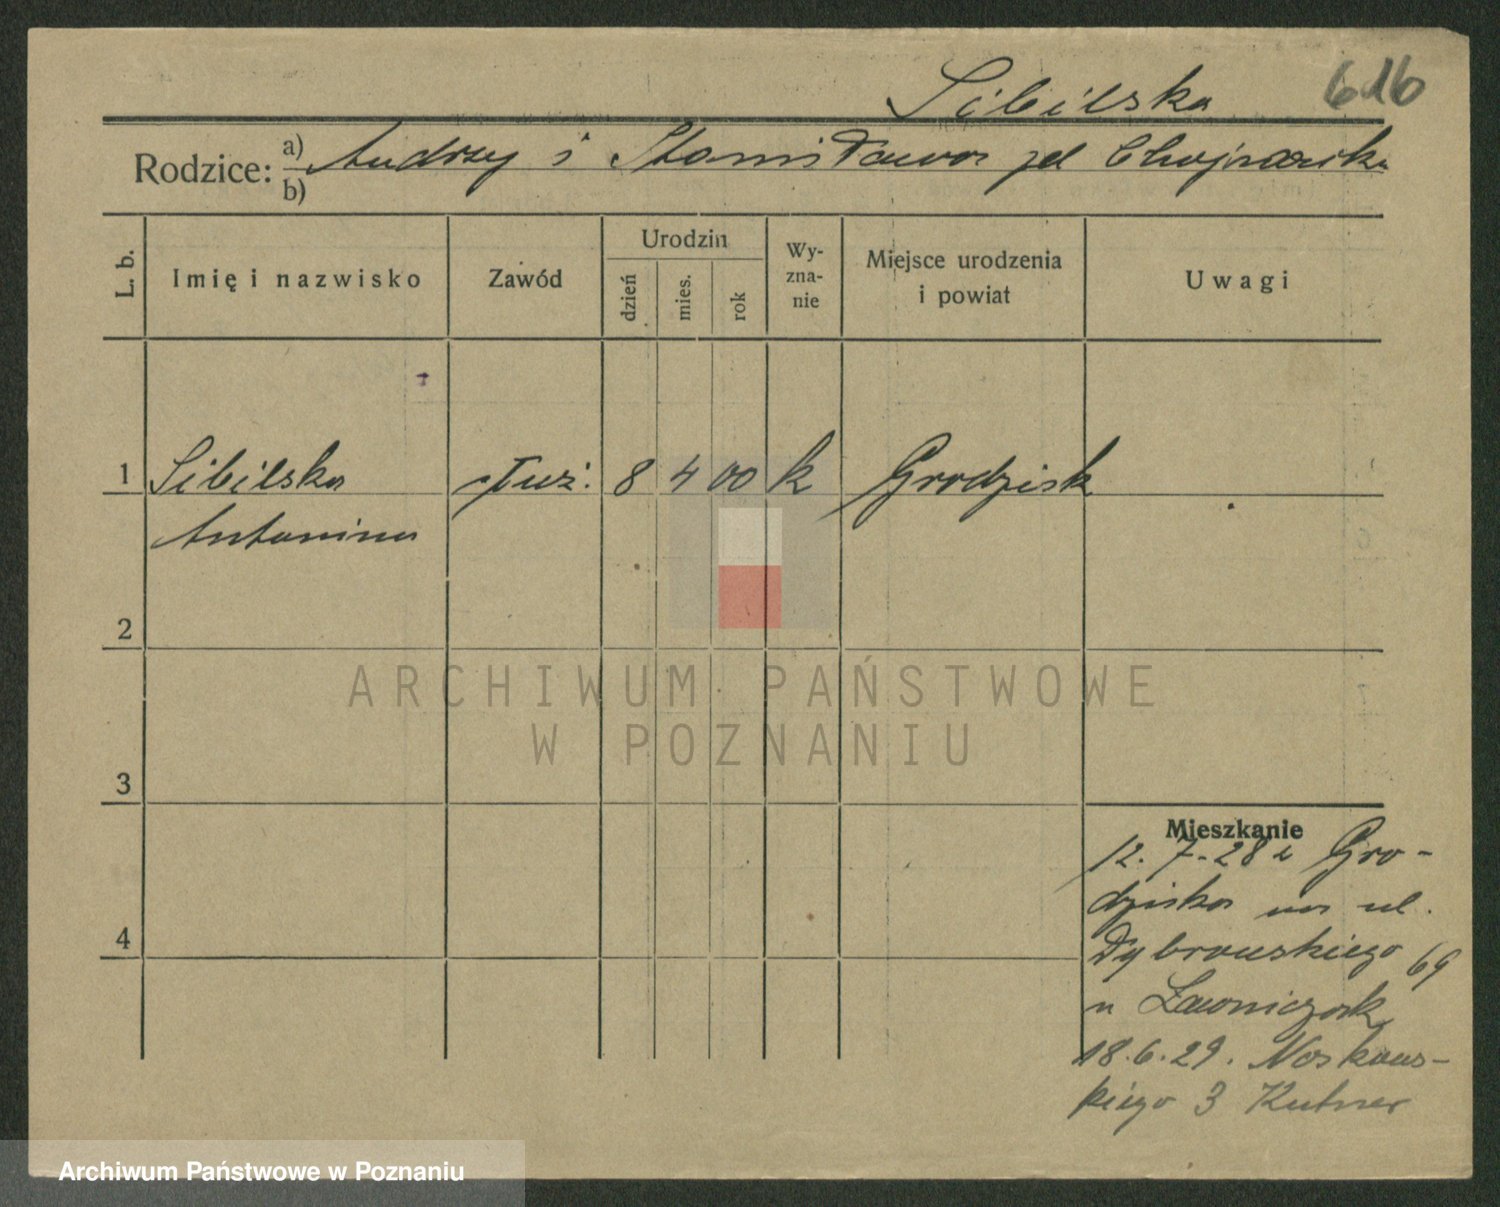 Sibilska 616
Rodzice: a) Andrzej i Stanisława zd Chojnacka
b)
L. b. Imię i nazwisko Zawód Urodzin Wyzna- Miejsce urodzenia Uwagi
dzień mies. rok nie i powiat
1 Sibilska służ. 8 4 00 k Grodzisk
Antonina
2
ARCHIWUM PAŃSTWOWE
W POZNANIU
3
Mieszkanie
12. 7-28 z Gro-
dziska na ul.
Dąbrowskiego 69
u Ławniczak
4
18.6.29. Noskows-
kiego 3 Kutner
Archiwum Państwowe w Poznaniu